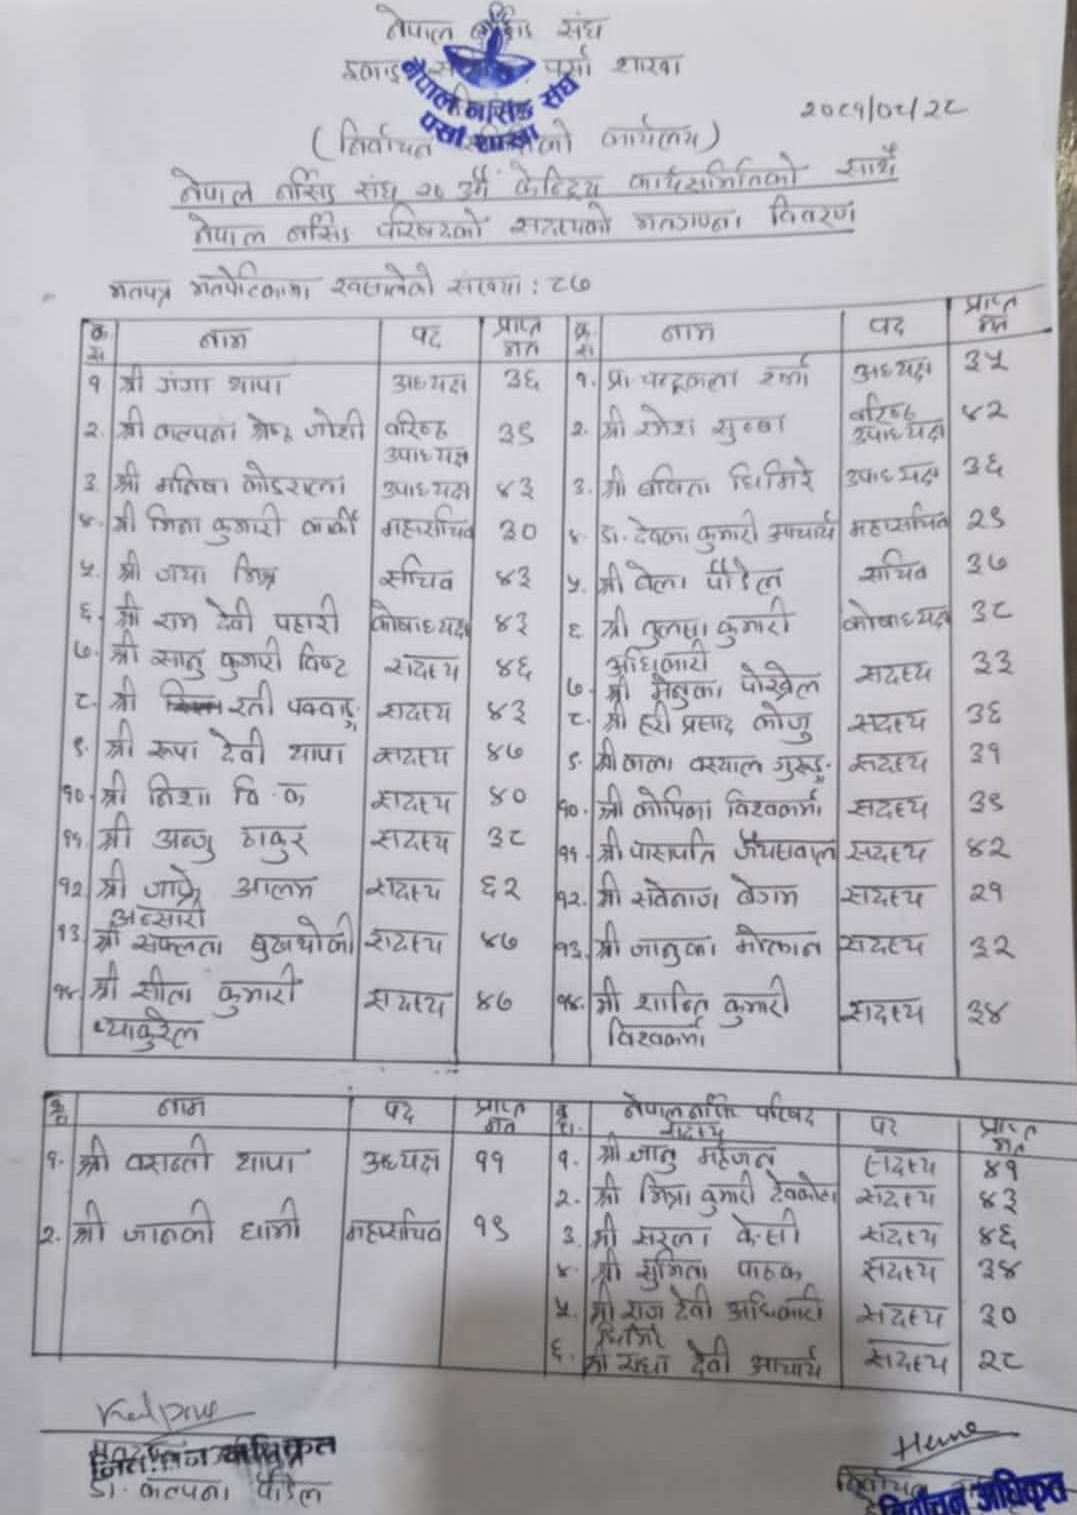 नेपाल नर्सिङ संघ
पर्सा शाखा
नेपाल नर्सिङ संघ
पर्सा शाखा
२०८१/०८/२८
(निर्वाचन कार्यलय)
नेपाल नर्सिङ संघ २० औं केन्द्रिय कार्यसमितिको साथै
नेपाल नर्सिङ परिषदको सदस्यको मतगणना विवरण
मतपत्र मतपेटिकामा खसालेको संख्या : ८७
क्र.स नाम पद प्राप्त मत क्र.स नाम पद प्राप्त मत
१ श्री गंगा थापा अध्यक्ष ३६ १. प्रा. चन्द्रकला शर्मा अध्यक्ष ३५
२. श्री कल्पना श्रेष्ठ जोशी वरिष्ठ उपाध्यक्ष ३९ २. श्री रमेश सुब्बा वरिष्ठ उपाध्यक्ष ४२
३. श्री मनिषा कोइराला उपाध्यक्ष ४३ ३. श्री बबिता घिमिरे उपाध्यक्ष ३६
४. श्री मिना कुमारी कार्की महासचिव ३० ४. डा. देवका कुमारी आचार्य महासचिव २९
५. श्री जया मिश्र सचिव ४३ ५. श्री बेला पौडेल सचिव ३७
६. श्री राम देवी पहारी कोषाध्यक्ष ४३ ६. श्री तुलसा कुमारी अधिकारी कोषाध्यक्ष ३८
७. श्री सानु कुमारी विष्ट सदस्य ४६ ७. श्री मेनुका पोखरेल सदस्य ३३
८. श्री रती सदस्य ४३ ८. श्री हरी प्रसाद कोजु सदस्य ३६
९. श्री रूपा देवी थापा सदस्य ४७ ९. श्री कला वस्याल गुरुङ सदस्य ३१
१०. श्री निशा वि. क सदस्य ४० १०. श्री कोपिला विश्वकर्मा सदस्य ३९
११. श्री अन्जु ठाकुर सदस्य ३८ ११. श्री पासपति जैयसवाल सदस्य ४२
१२. श्री जाफ्रे आलम अन्सारी सदस्य ६२ १२. श्री बेगम सदस्य २१
१३. श्री सफलता बुखथोकी सदस्य ४७ १३. श्री जानुका मोक्तान सदस्य ३२
१४. श्री सीता कुमारी ध्याकुरेल सदस्य ४७ १४. श्री शान्ति कुमारी विश्वकर्मा सदस्य ३४
क्र.स नाम पद प्राप्त मत क्र.स. नेपाल नर्सिङ परिषद सदस्य पद प्राप्त मत
१. श्री वसन्ती थापा अध्यक्ष ११ १. श्री जानु महर्जन सदस्य ४१
२. श्री मित्रा कुमारी देवकोटा सदस्य ४३
२. श्री जानकी धामी महासचिव १९ ३. श्री सरला के.सी सदस्य ४६
४. श्री सुमिता पाठक सदस्य ३४
५. श्री राज देवी अधिकारी सदस्य ३०
६. श्री राधा देवी आचार्य सदस्य २८
डा. कल्पना पौडेल
निर्वाचन अधिकृत